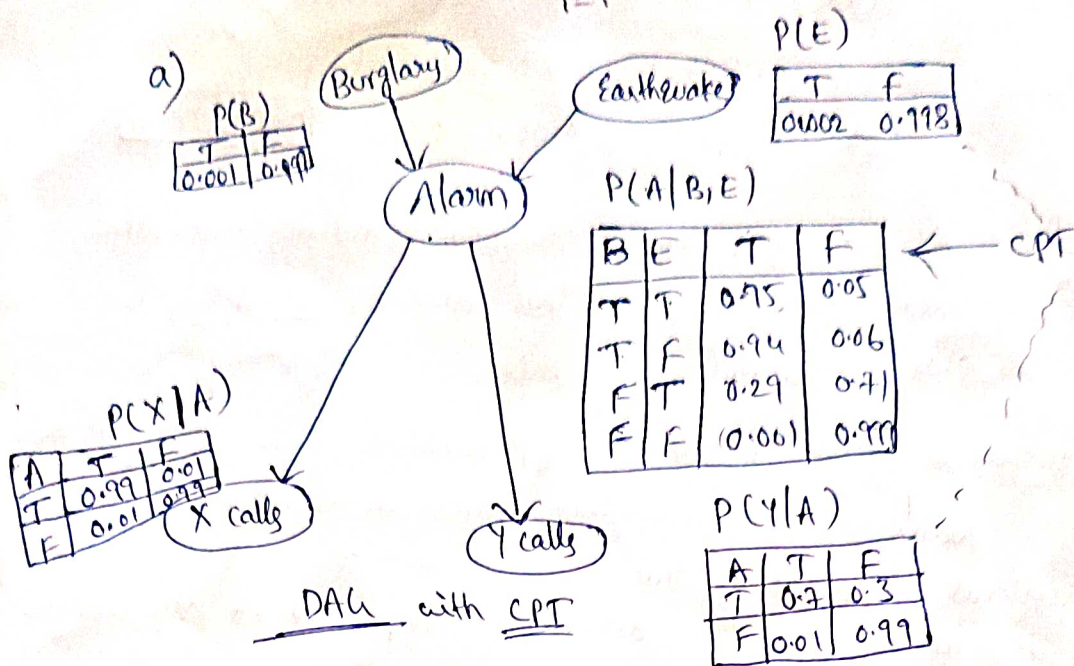 a)
Burglary
Earthquake
P(E)
T F
0.002 0.998
P(B)
T F
0.001 0.999
Alarm
P(A|B,E)
B E T F
T T 0.95 0.05
T F 0.94 0.06
F T 0.29 0.71
F F 0.001 0.999
← CPT
P(X|A)
A T F
T 0.99 0.01
F 0.01 0.99
X calls
Y calls
P(Y|A)
A T F
T 0.7 0.3
F 0.01 0.99
DAG with CPT